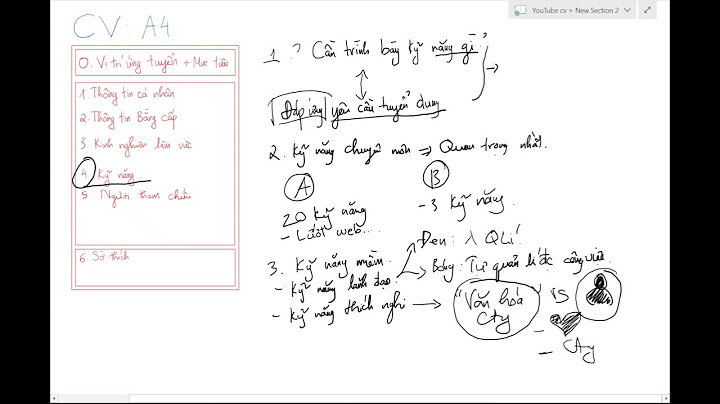 YouTube cv > New Section 2
CV: A4
0. Vị trí ứng tuyển + Mục tiêu
1 Thông tin cá nhân
2. Thông tin Bằng cấp
3. Kinh nghiệm làm việc
4. Kỹ năng
5. Người tham chiếu
6. Sở thích
1 ? Cần trình bày kỹ năng gì
Đáp ứng yêu cầu tuyển dụng
2. Kỹ năng chuyên môn ⇒ Quan trọng nhất.
A
B
20 Kỹ năng
- Lướt web...
- 3 Kỹ năng.
3. Kỹ năng mềm
- Kỹ năng lãnh đạo
- Kỹ năng thích nghi
Đen: QLí
Bóng: Tự quản lí đc công việc
"Văn hóa
Cty"
VS
- Cty